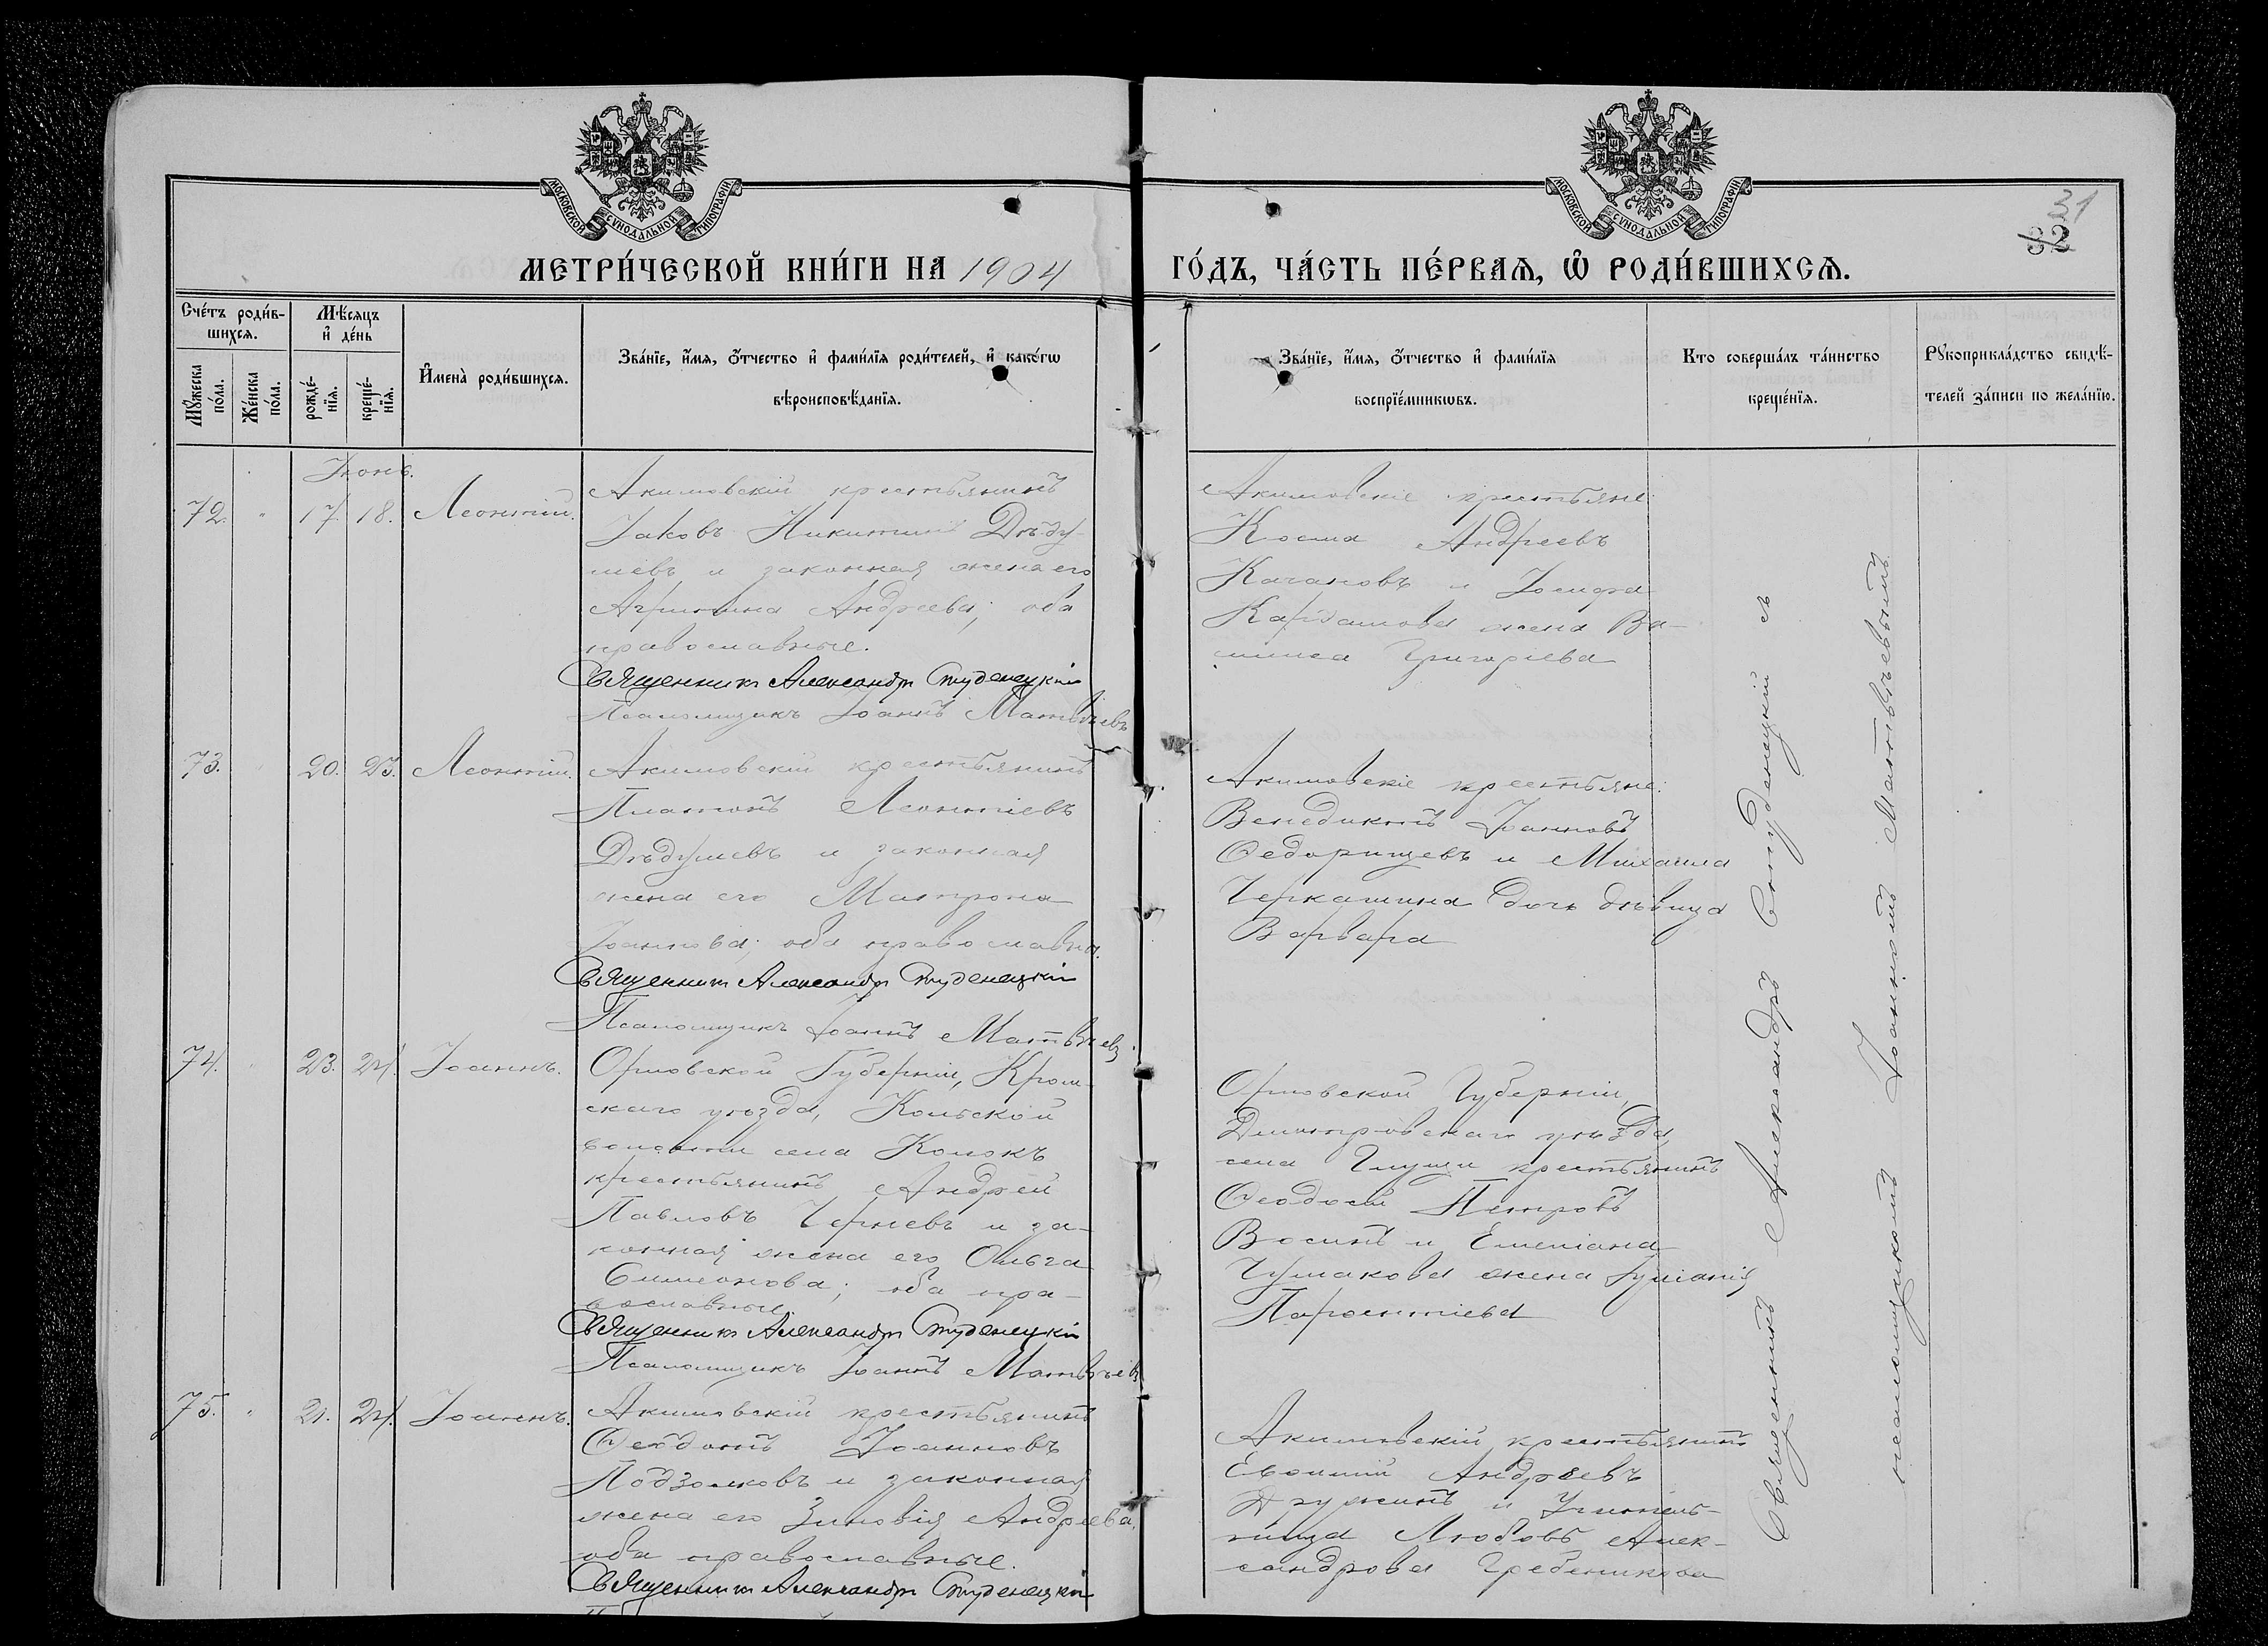 МОСКОВСКОЙ СѴНОДАЛЬНОЙ ТИПОГРАФІИ
МОСКОВСКОЙ СѴНОДАЛЬНОЙ ТИПОГРАФІИ
31
32
МЕТРИ́ЧЕСКОЙ КНИ́ГИ НА 1904
ГО́ДЪ, ЧА́СТЬ ПЕ́РВАѦ, Ѡ҆ РОДИ́ВШИХСѦ.
Сче́тъ роди́в-
шихсѧ.
Мꙋ́жеска
по́ла.
Же́нска
по́ла.
Мѣ́сѧцъ
и҆ де́нь
рожде́-
нїѧ.
креще́-
нїѧ.
И҆мена̀ роди́вшихсѧ.
Зва́нїе, и҆́мѧ, ѻ҆́тчество и҆ фами́лїѧ роди́телей, и҆ како́гѡ
вѣроисповѣ́данїѧ.
Зва́нїе, и҆́мѧ, ѻ҆́тчество и҆ фами́лїѧ
воспрїе́мникѡвъ.
Кто соверша́лъ та́инство
креще́нїѧ.
Рꙋкоприкла́дство свидѣ́-
телей за́писи по жела́нїю.
Іюнь.
72. " 17. 18. Леонтій.
Акимовскій крестьянинъ
Іаковъ Никитинъ Дѣду-
шевъ и законная жена его
Агрипина Андреева; оба
православные.
Священникъ Александръ Студенецкій
Псаломщикъ Іоаннъ Матвѣевъ
Акимовскіе крестьяне:
Косма Андреевъ
Качановъ и Іосифа
Кардашова жена Ва-
силиса Григоріева
73. 20. 23. Леонтій.
Акимовскій крестьянинъ
Платонъ Леонтіевъ
Дѣдушевъ и законная
жена его Матрона
Іоаннова; оба православны.
Священникъ Александръ Студенецкій
Псаломщикъ Іоаннъ Матвѣевъ
Акимовскіе крестьяне:
Венедиктъ Іоанновъ
Федорищевъ и Михаила
Черкашина дочь дѣвица
Варвара
74. 23. 24. Іоаннъ.
Орловской Губерніи, Кром-
скаго уѣзда, Кольской
волости села Колокъ
крестьянинъ Андрей
Павловъ Черневъ и за-
конная жена его Ольга
Симеонова; оба пра-
вославные.
Священникъ Александръ Студенецкій
Псаломщикъ Іоаннъ Матвѣевъ
Орловской Губерніи,
Дмитровскаго уѣзда,
села Глущи крестьянинъ
Ѳеодосій Петровъ
Восинъ и Емеліана
Чумакова жена Іуліанія
Парѳентіева
75. " 21. 24. Іоаннъ.
Акимовскій крестьянинъ
Ѳеодотъ Іоанновъ
Подзолковъ и законная
жена его Зиновія Андреева,
оба православные.
Священникъ Александръ Студенецкій
Акимовскій крестьянинъ
Евѳимій Андреевъ
Дружинъ и Учитель-
ница Любовь Алек-
сандрова Гребеникова
Священникъ Александръ Студенецкій съ
псаломщикомъ Іоанномъ Матвѣевымъ